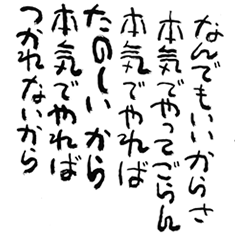 なんでもいいからさ
本気でやってごらん
本気でやれば
たのしいから
本気でやれば
つかれないから